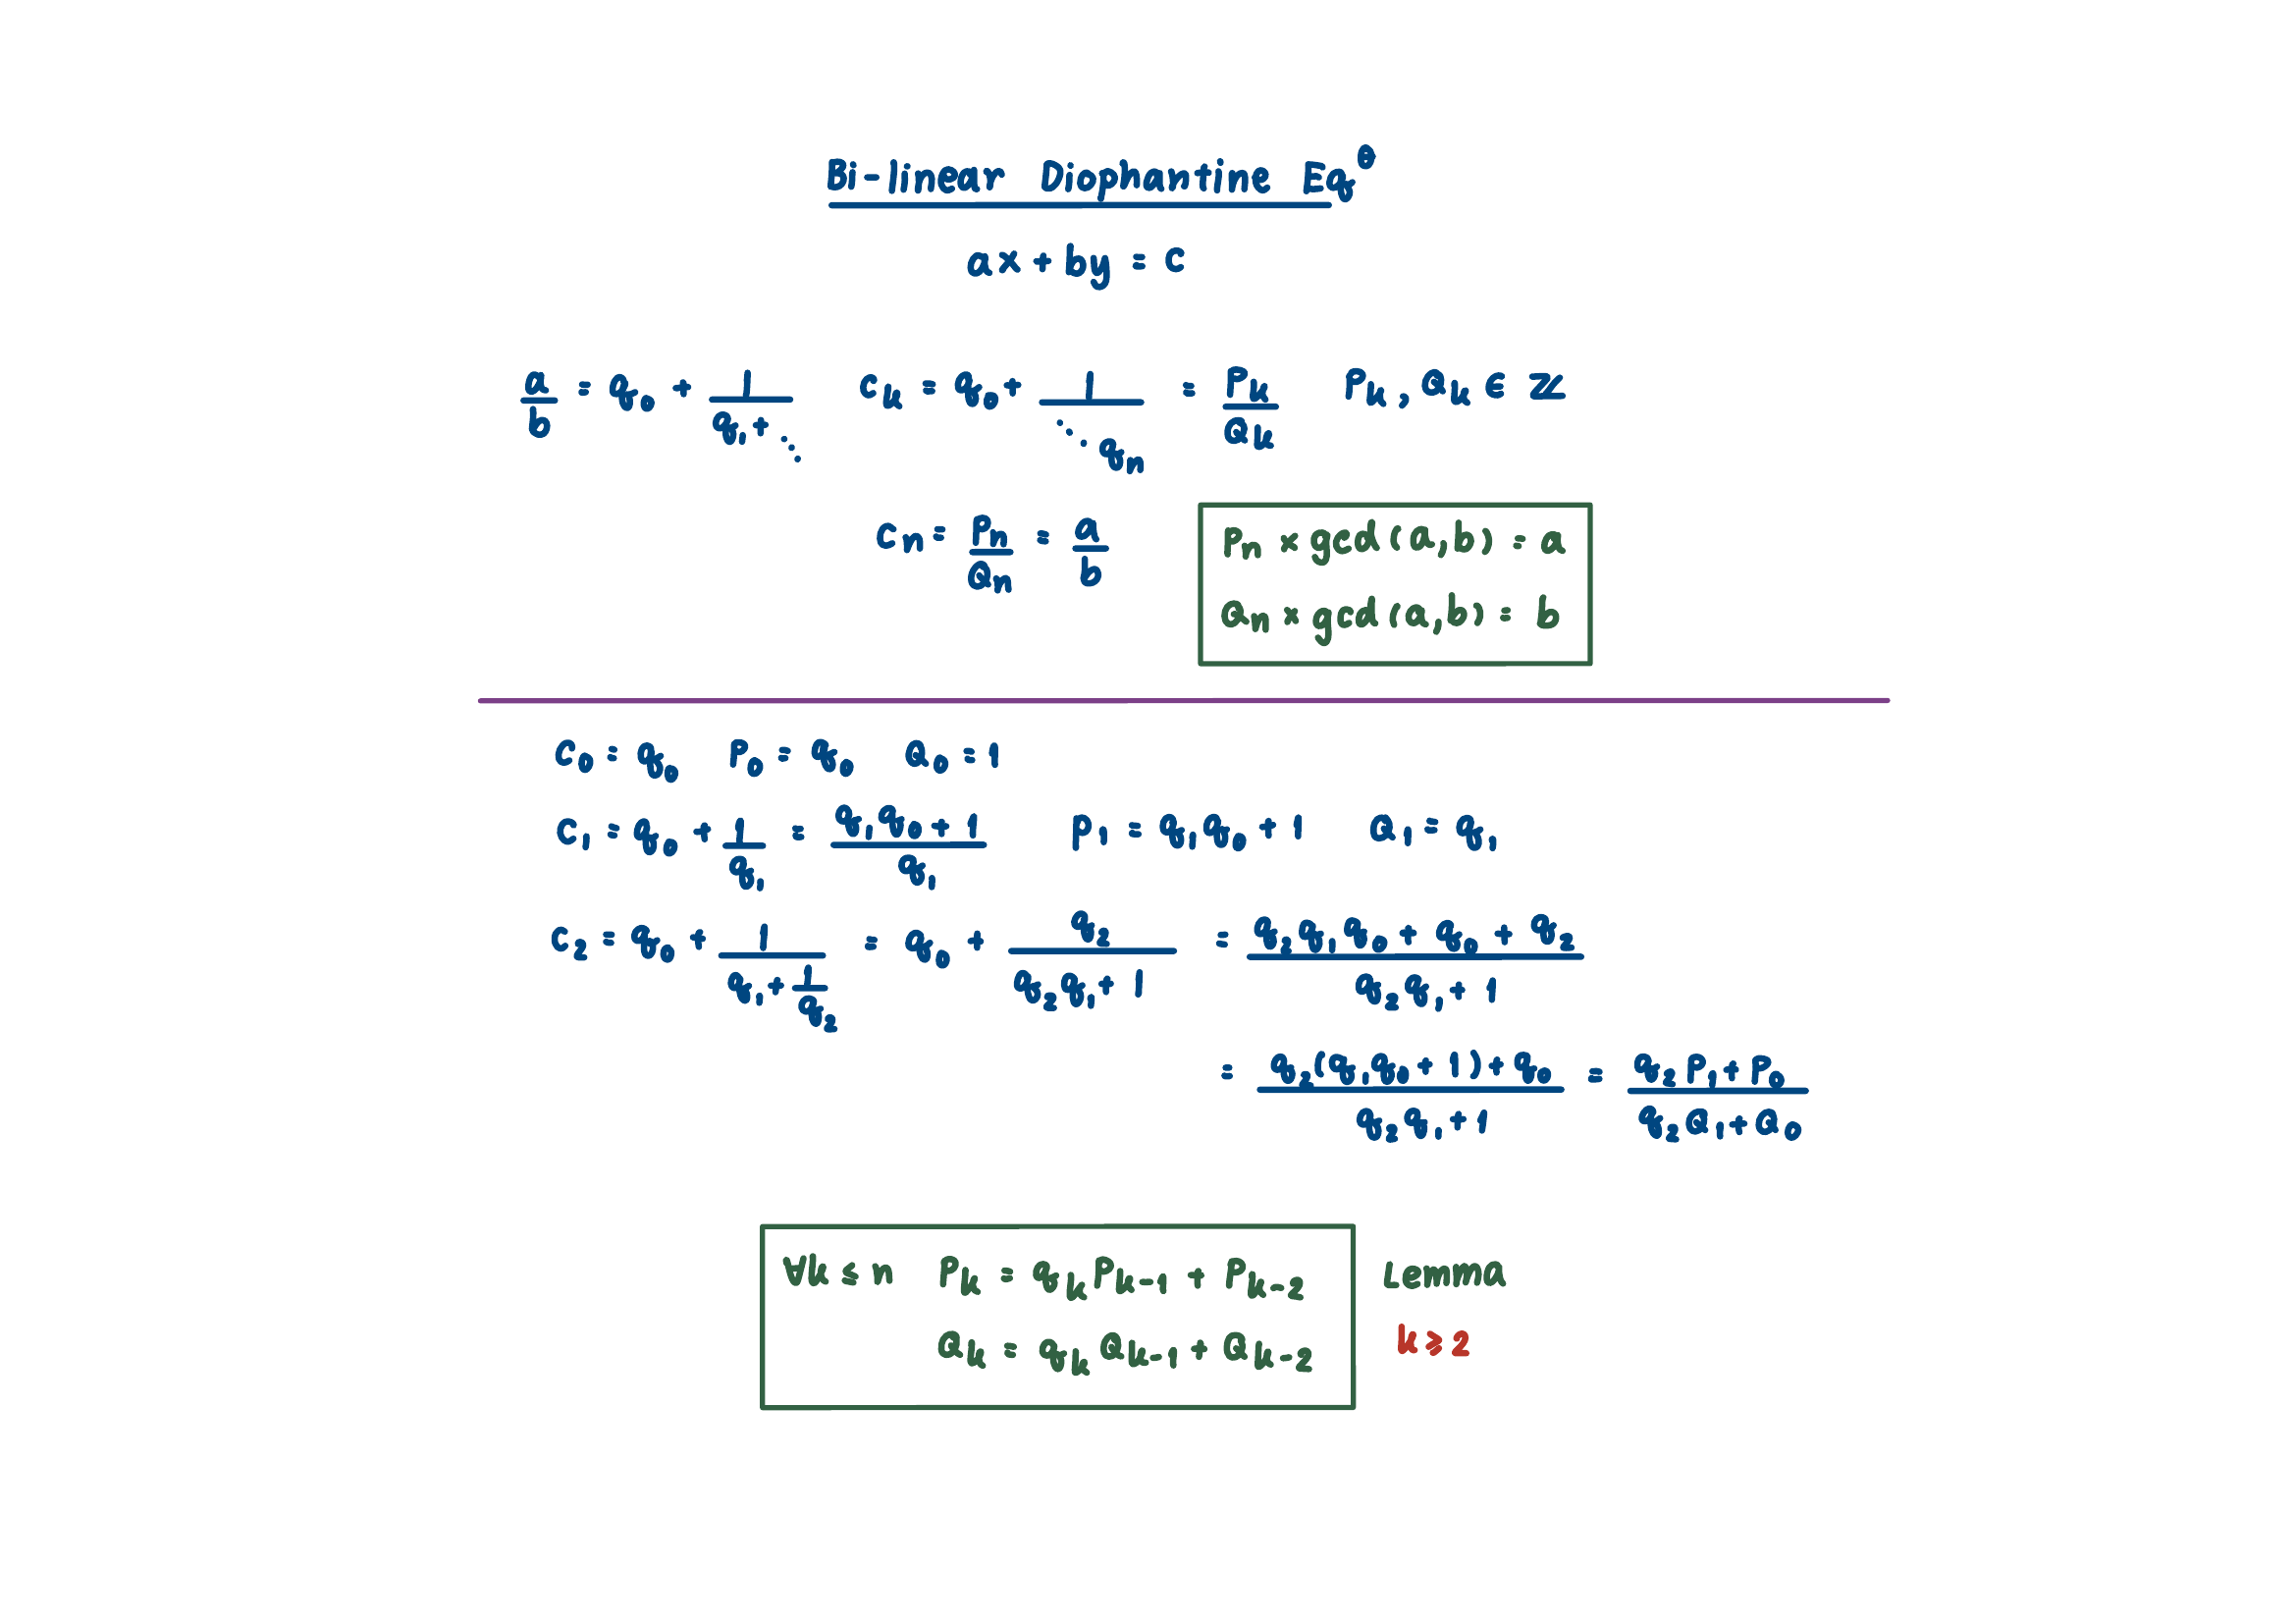 Bi-linear Diophantine Eqⁿ
ax + by = c
a/b = q₀ + 1/(q₁ + ⋱) C_k = q₀ + 1/(⋱ q_n) = P_k/Q_k P_k, Q_k ∈ ℤ
C_n = P_n/Q_n = a/b
P_n × gcd(a,b) = a
Q_n × gcd(a,b) = b
C₀ = q₀ P₀ = q₀ Q₀ = 1
C₁ = q₀ + 1/q₁ = (q₁q₀ + 1)/q₁ P₁ = q₁q₀ + 1 Q₁ = q₁
C₂ = q₀ + 1/(q₁ + 1/q₂) = q₀ + q₂/(q₂q₁ + 1) = (q₂q₁q₀ + q₀ + q₂)/(q₂q₁ + 1)
= (q₂(q₁q₀ + 1) + q₀)/(q₂q₁ + 1) = (q₂P₁ + P₀)/(q₂Q₁ + Q₀)
∀k ≤ n P_k = q_k P_{k-1} + P_{k-2} Lemma
Q_k = q_k Q_{k-1} + Q_{k-2} k ≥ 2